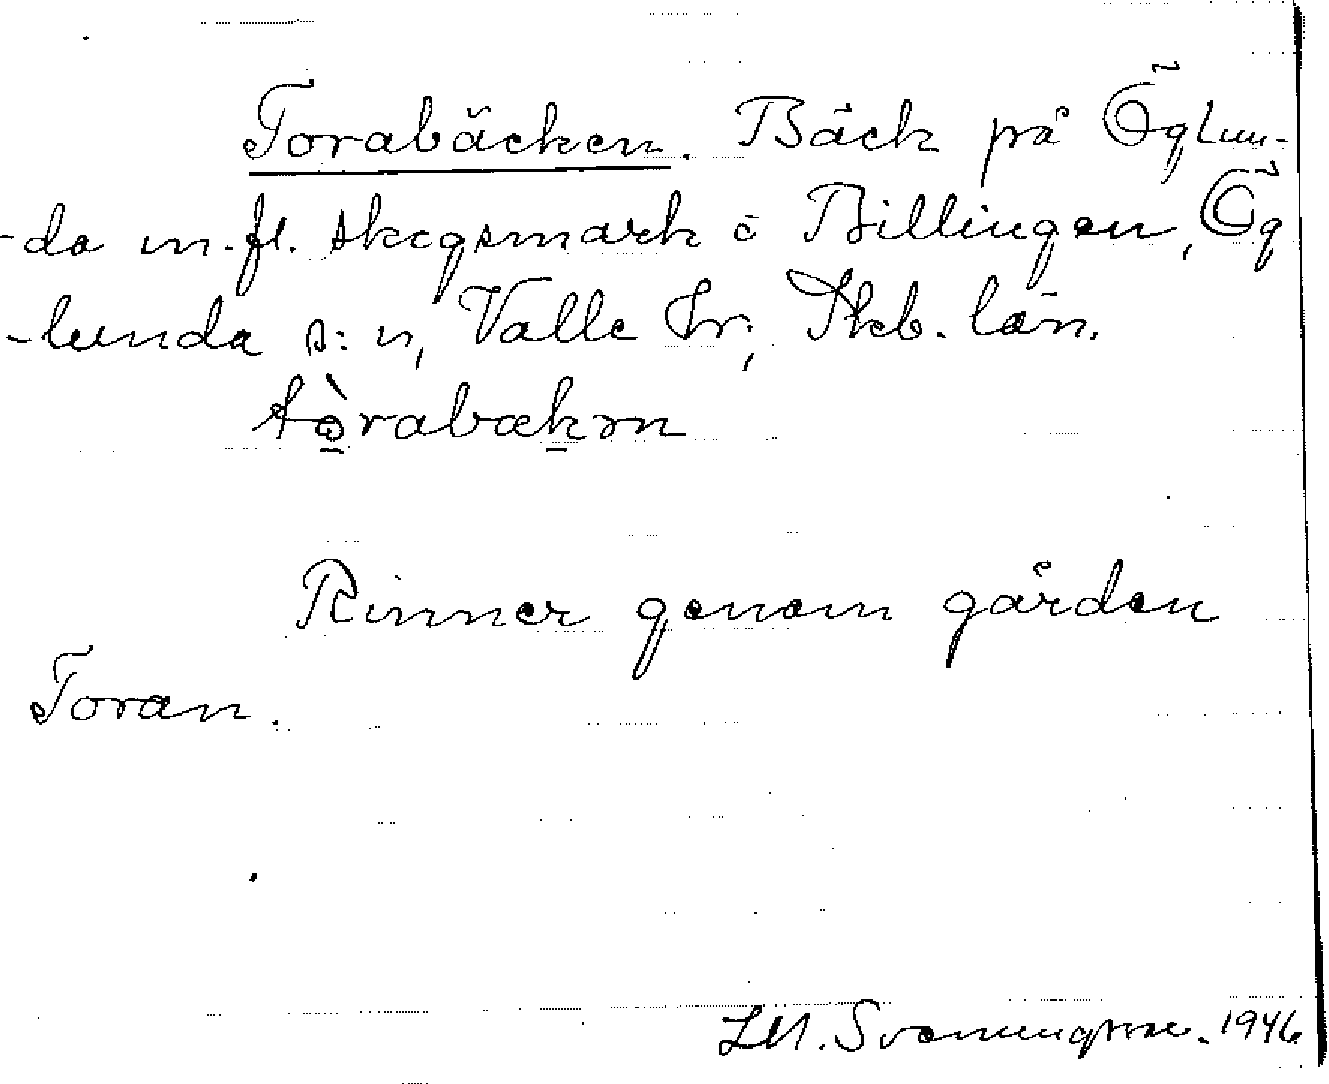 Torabäcken. Bäck på Öglun-
-da m.fl. skogsmark å Billingen, Ög
-lunda s:n, Valle hr, Skb. län.
tòrabækɘn
Rinner genom gården
Toran.
1946